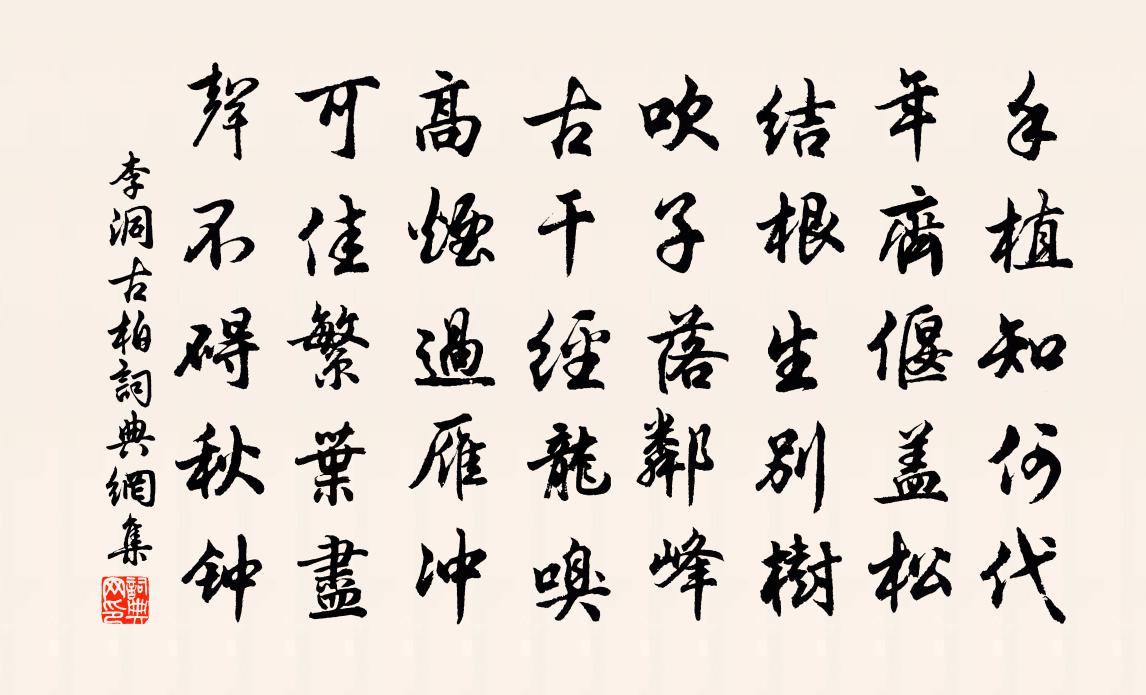 手植知何代
年齊偃盖松
结根生別樹
吹子落鄰峰
古干經龍嗅
高煙過雁冲
可佳繁葉盡
聲不碍秋钟
李洞古柏詞典網集
詞典网印